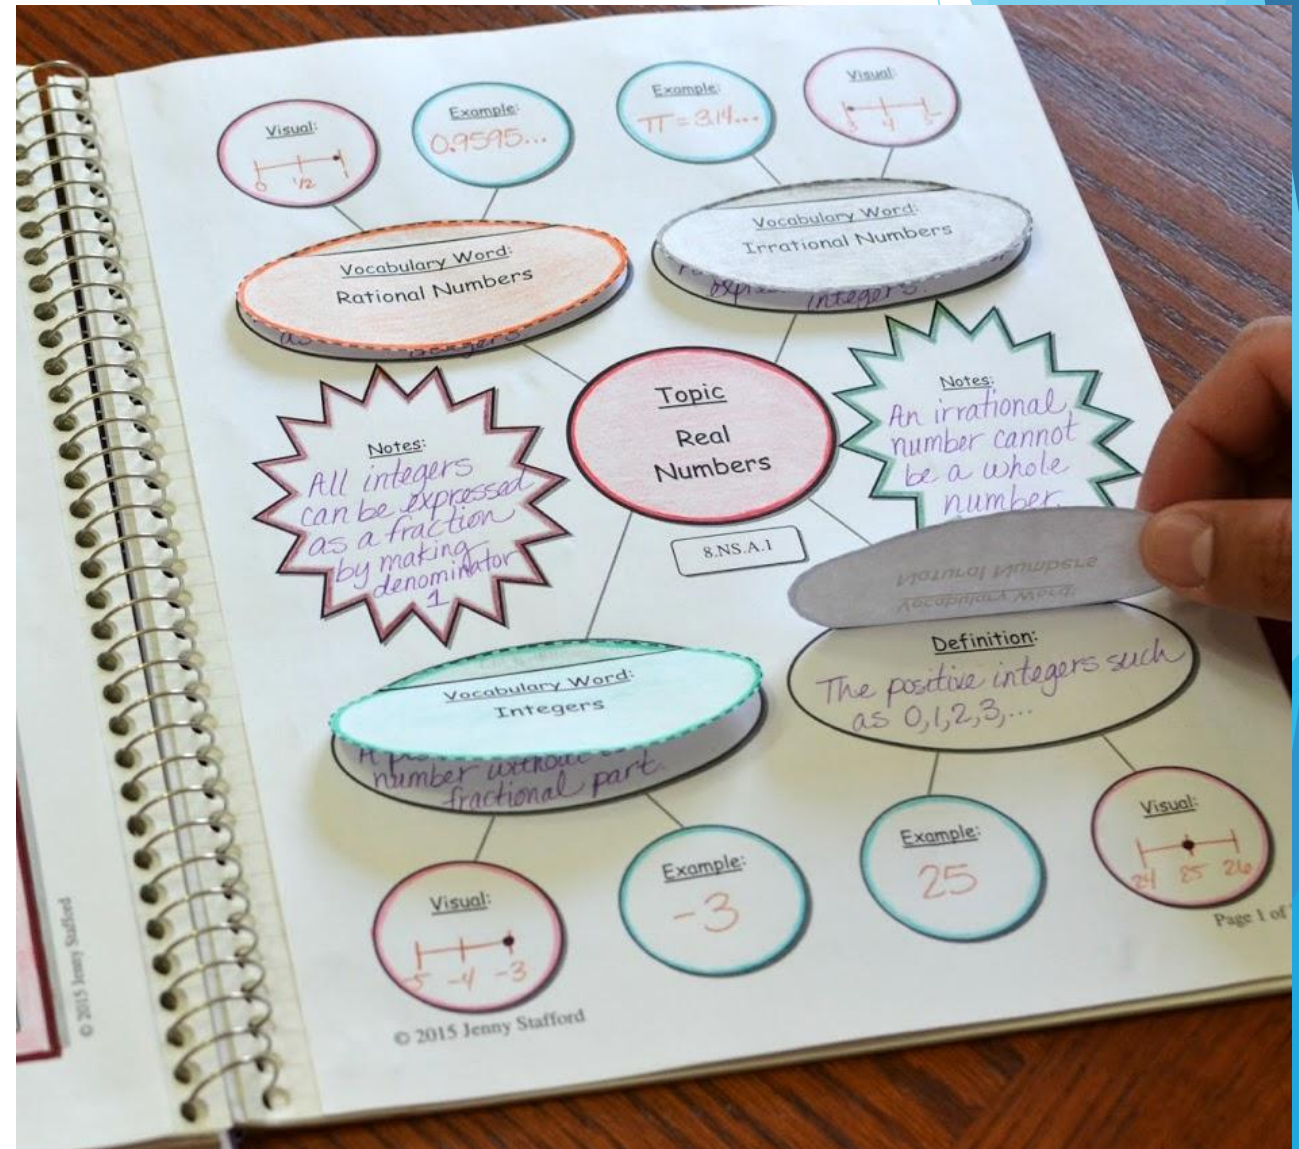 Visual:
0 1/2 1
Example:
0.9595...
Example:
π = 3.14...
Visual:
3 4 5
Vocabulary Word:
Rational Numbers
as
integers
Vocabulary Word:
Irrational Numbers
integers.
Topic
Real
Numbers
8.NS.A.1
Notes:
All integers
can be expressed
as a fraction
by making
denominator
1
Notes:
An irrational
number cannot
be a whole
number.
Vocabulary Word:
Natural Numbers
Definition:
The positive integers such
as 0,1,2,3,...
Vocabulary Word:
Integers
A
number without
fractional part.
Visual:
-5 -4 -3
Example:
-3
Example:
25
Visual:
24 25 26
Page 1 of
© 2015 Jenny Stafford
© 2015 Jenny Stafford